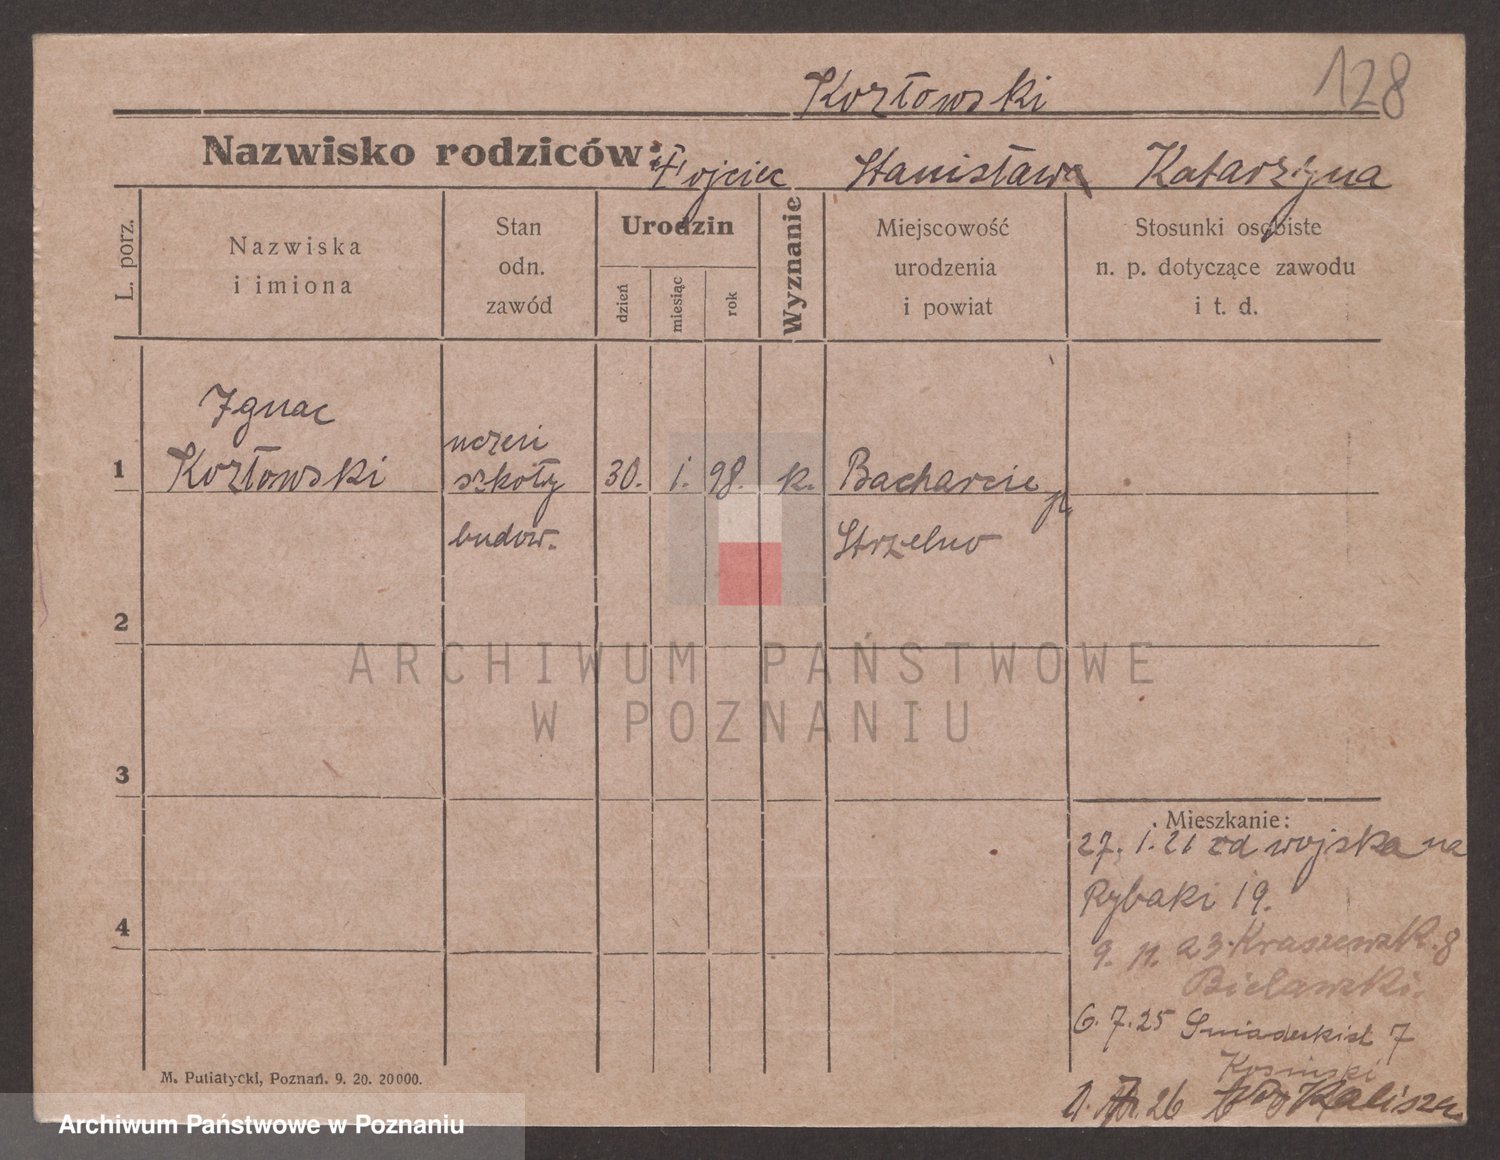 128
Kozłowski
Nazwisko rodziców:
Wojciec Stanisława Katarzyna
L. porz.
Nazwiska
i imiona
Stan
odn.
zawód
Urodzin
dzień
miesiąc
rok
Wyznanie
Miejscowość
urodzenia
i powiat
Stosunki osobiste
n. p. dotyczące zawodu
i t. d.
Ignac
1 Kozłowski uczeń
szkoły 30. 1. 98. k. Bacharcie p.
budow. Strzelno
2
3
4
Mieszkanie:
27. 1. 21 od wojska na
Rybaki 19.
9. 11. 23. Kraszewsk. 8
Bielawski.
6. 7. 25 Śniadeckich 7
Kosiński
1. 26 Kalisza
M. Putiatycki, Poznań. 9. 20. 20000.
ARCHIWUM PAŃSTWOWE
W POZNANIU
Archiwum Państwowe w Poznaniu